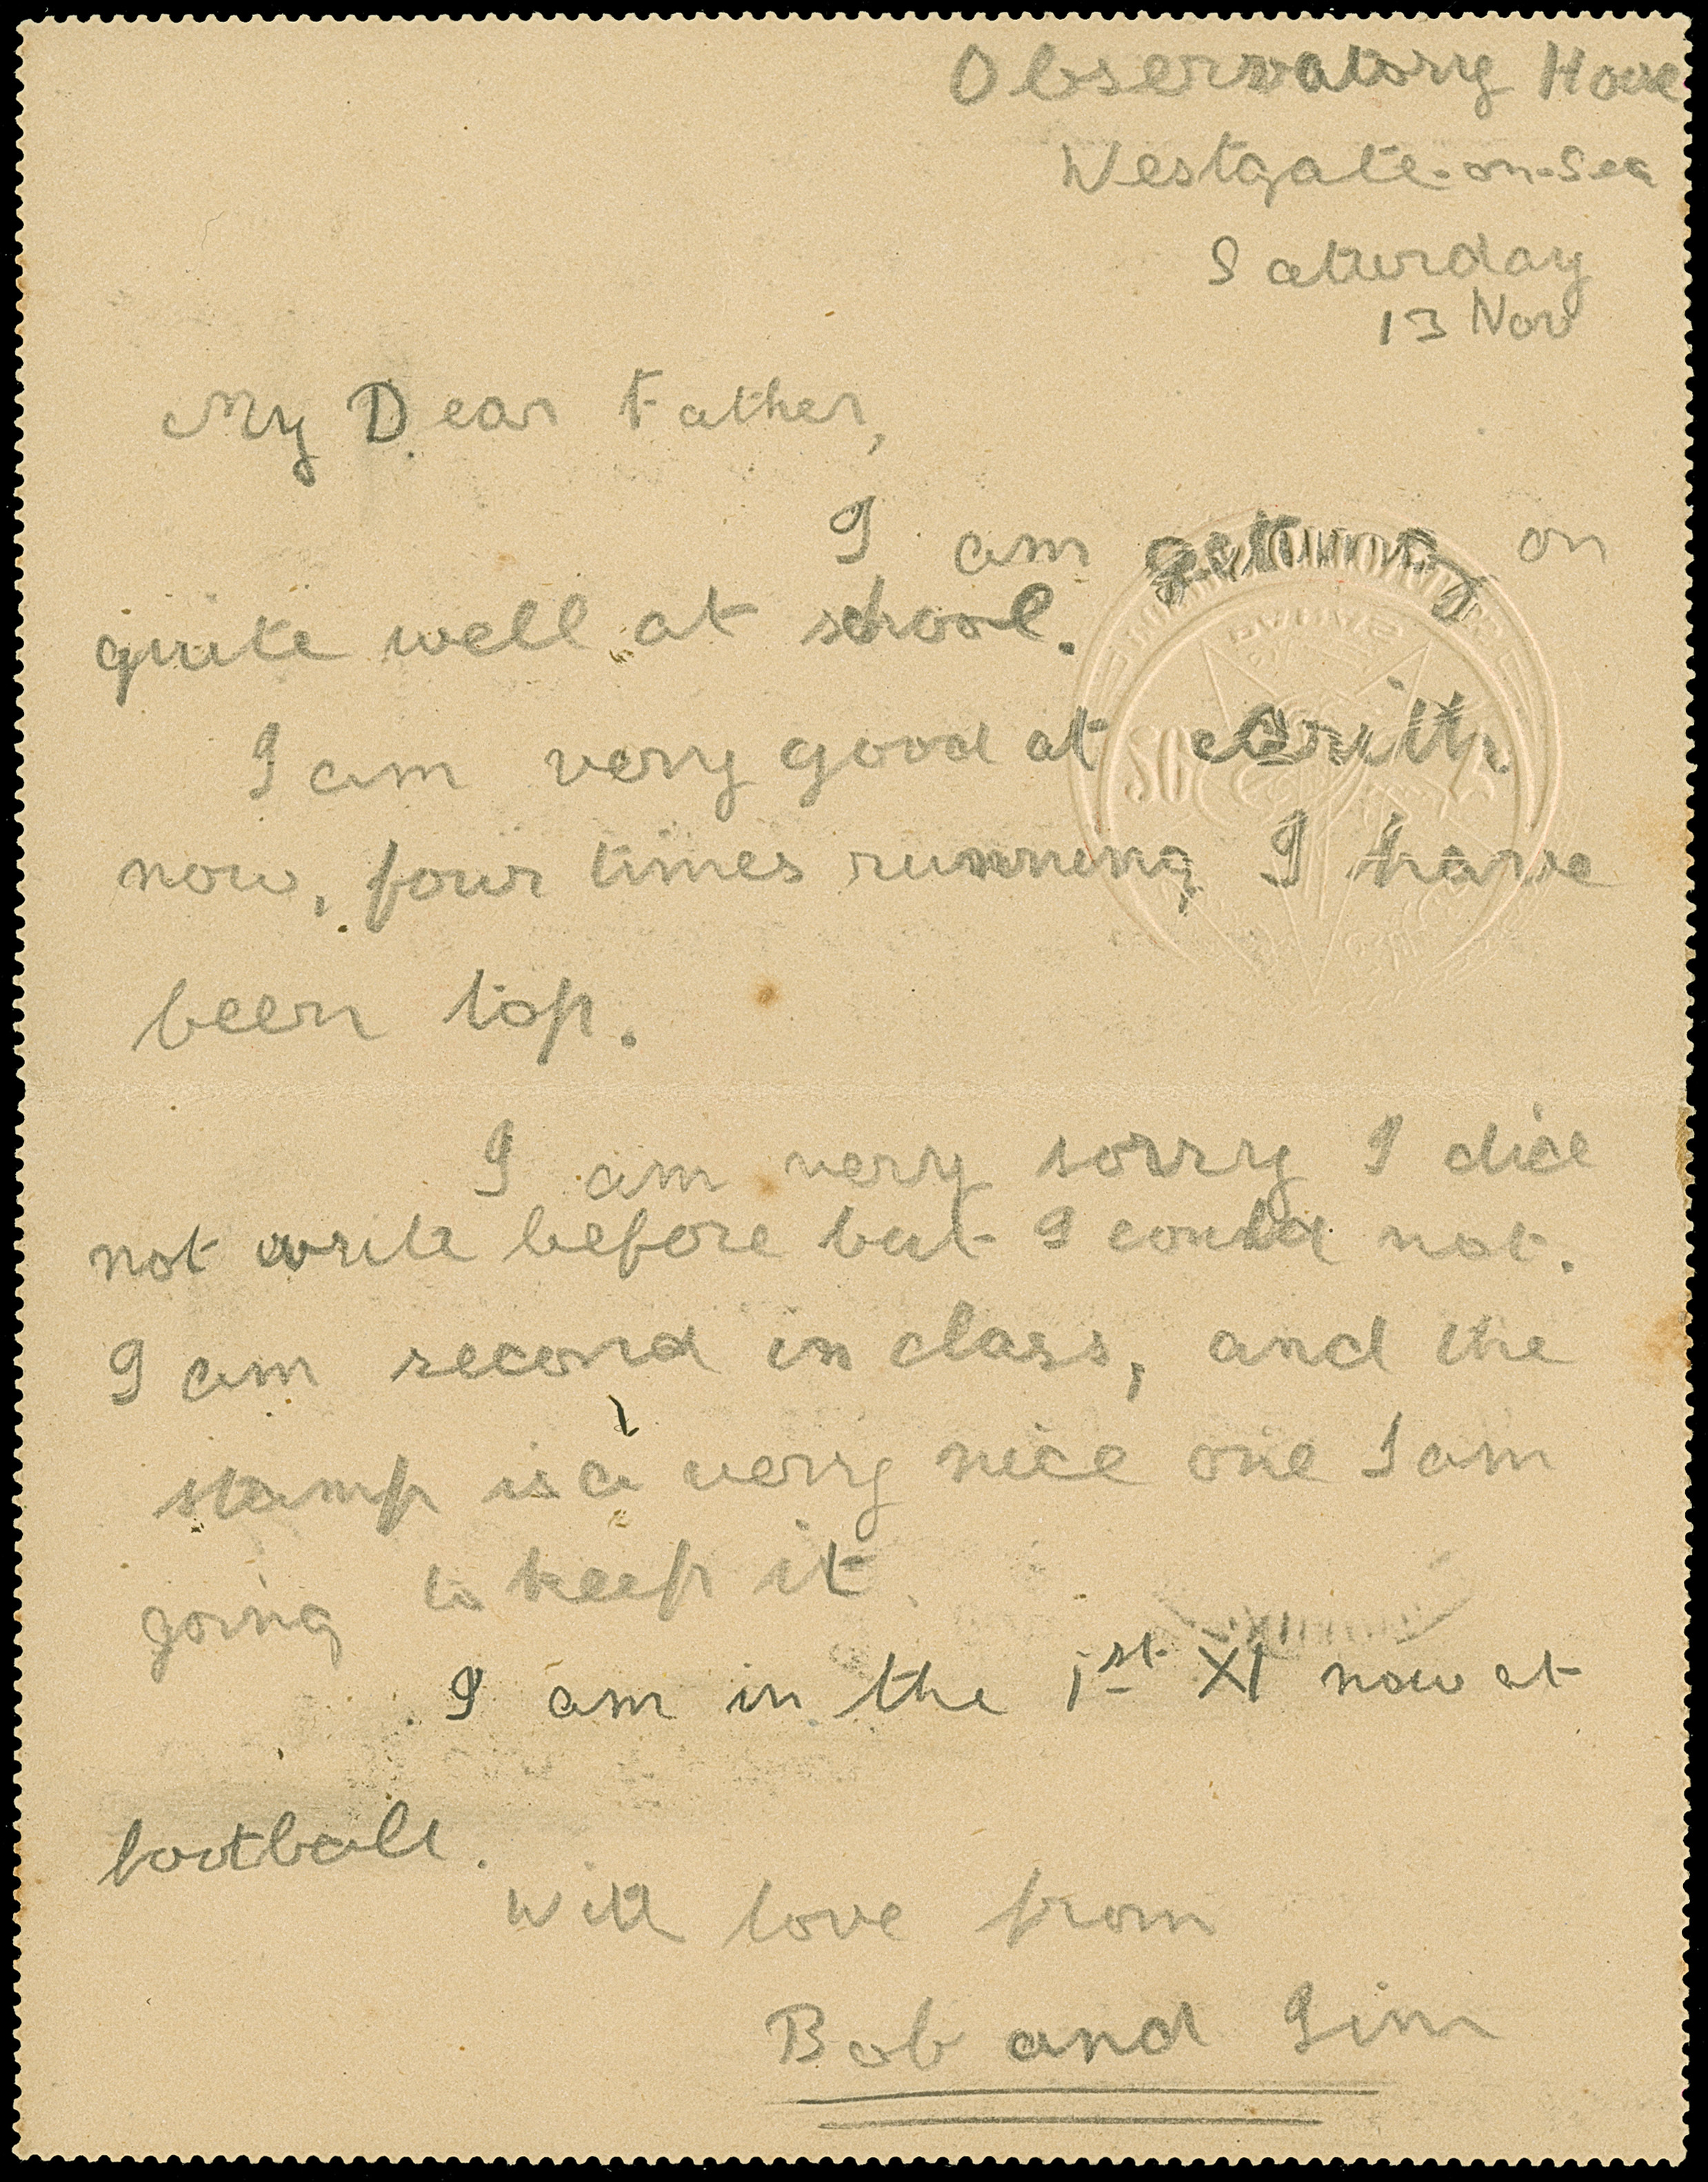 Observatory House
Westgate-on-Sea
Saturday
13 Nov
My Dear Father,
I am getting on
quite well at school.
I am very good at arith.
now, four times running, I have
been top.
I am very sorry I did
not write before but I could not.
I am second in class, and the
stamp is a very nice one I am
going to keep it.
I am in the 1st XI now at
football.
With love from
Bob and Jim